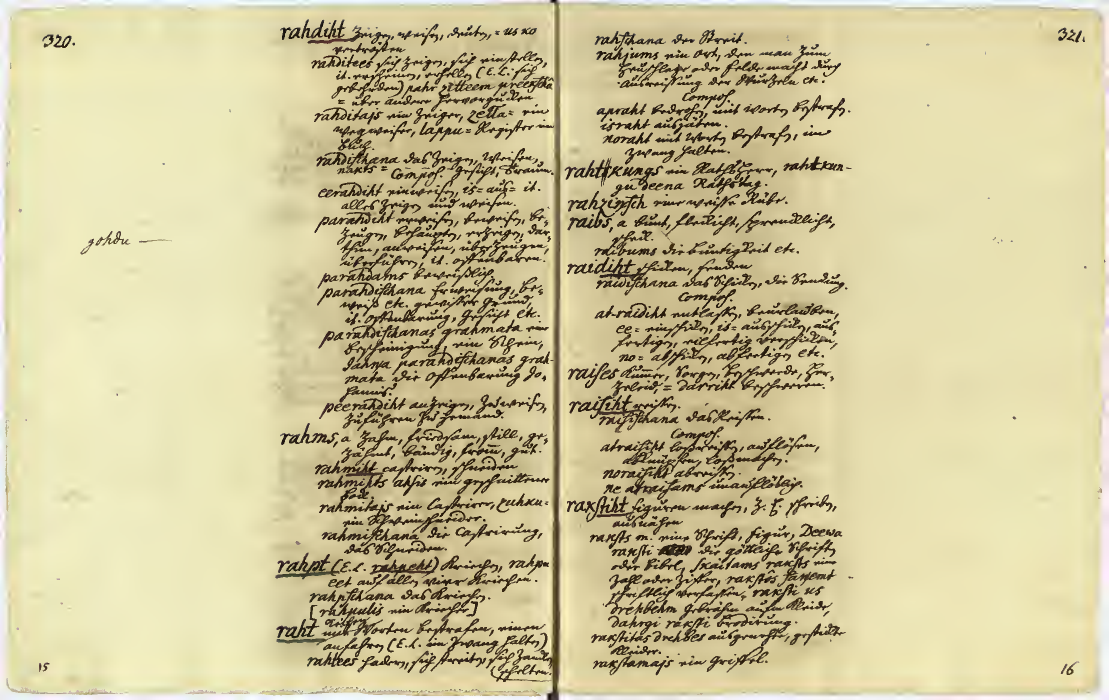 320.
rahdiht zeigen, weisen, deuten, = us ko
vertrösten
rahditees sich zeigen, sich einstellen,
it. erscheinen, erhellen (E.L. sich
geberden) pahr zitteem preekschâ
= über andere hervorgucken
rahditajs ein Zeiger, zella= ein
wegweiser, lappu= Register im
Buch.
rahdischana das Zeigen, Weisen,
nakts= Gesicht, Traum.
Compos.
eerahdiht einweisen, is= aus= it.
alles zeigen und weisen.
parahdiht erweisen, beweisen, be=
zeugen, behaupten, erzeigen, dar=
thun, anweisen, überzeugen,
überführen, it. offenbaren.
parahdams beweislich.
parahdischana Erweisung, Be=
weiß etc. gewisser Grund,
it. Offenbarung, Gesicht etc.
parahdischanas grahmata eine
Bescheinigung, ein Schein,
Jahna parahdischanas grah=
mata die Offenbarung Jo=
hannis.
peerahdiht anzeigen, zuweisen,
zuführen zu jemand.
gohdu —
rahms, a zahm, friedsam, still, ge=
zähmt, bändig, fromm, gut.
rahmiht castriren, schneiden
rahmihts ahsis ein geschnittener
Bock.
rahmitajs ein Castrirer, zuhku=
ein Schweinschneider.
rahmischana die Castrirung,
das Schneiden.
rahpt (E.L. rahpeht) kriechen, rahpu
eet auf allen vieren kriechen.
rahpschana das Kriechen.
[rahpulis ein Kriecher]
raht mit Worten bestrafen, einen
anfahren (E.L. im Zwang halten)
rahtees hadern, sich streiten, sich zanken
schelten.
15
321.
rahschana der Streit.
rahjums ein Ort, den man zum
Heuschlage oder Felde macht durch
Ausreissung der Wurzeln etc.
Compos.
apraht bedrohen, mit Worten bestrafen.
israht ausjäten.
noraht mit Worten bestrafen, im
Zwang halten.
rahtskungs ein Rathsherr, rahtskun-
gu deena Rathstag.
rahzinsch eine weisse Rübe.
raibs, a bunt, fleckicht, sprencklicht,
scheck.
raibums die Buntigkeit etc.
raidiht schicken, senden
raidischana das Schicken, die Sendung.
Compos.
at-raidiht entlassen, beurlauben,
ee= einschicken, is= ausschicken, aus=
fertigen, eilfertig verschicken,
no= abschicken, abfertigen etc.
raises Kummer, Sorgen, Beschwerde, Her=
zeleid, = darriht beschweren.
raisiht reissen.
raisischana das Reissen.
Compos.
atraisiht losreissen, auflösen,
abknüpfen, losmachen.
noraisiht abreissen.
ne atraisams unauflöslich.
raxstiht figuren machen, z. E. schreiben,
ausnähen
raxsts m. eine Schrift, Figur, Deewa
raxsti die göttliche Schrift
oder Bibel, skaitams raxsts eine
Zahl oder Ziffer, raxstôs saxemt
schriftlich verfassen, raxsti us
drehbehm Gebräme aufm Kleide,
dahrgi raxsti Brodirung.
raxstitas drehbes ausgenehte, gestickte
Kleider.
raxstamajs ein Griffel.
16